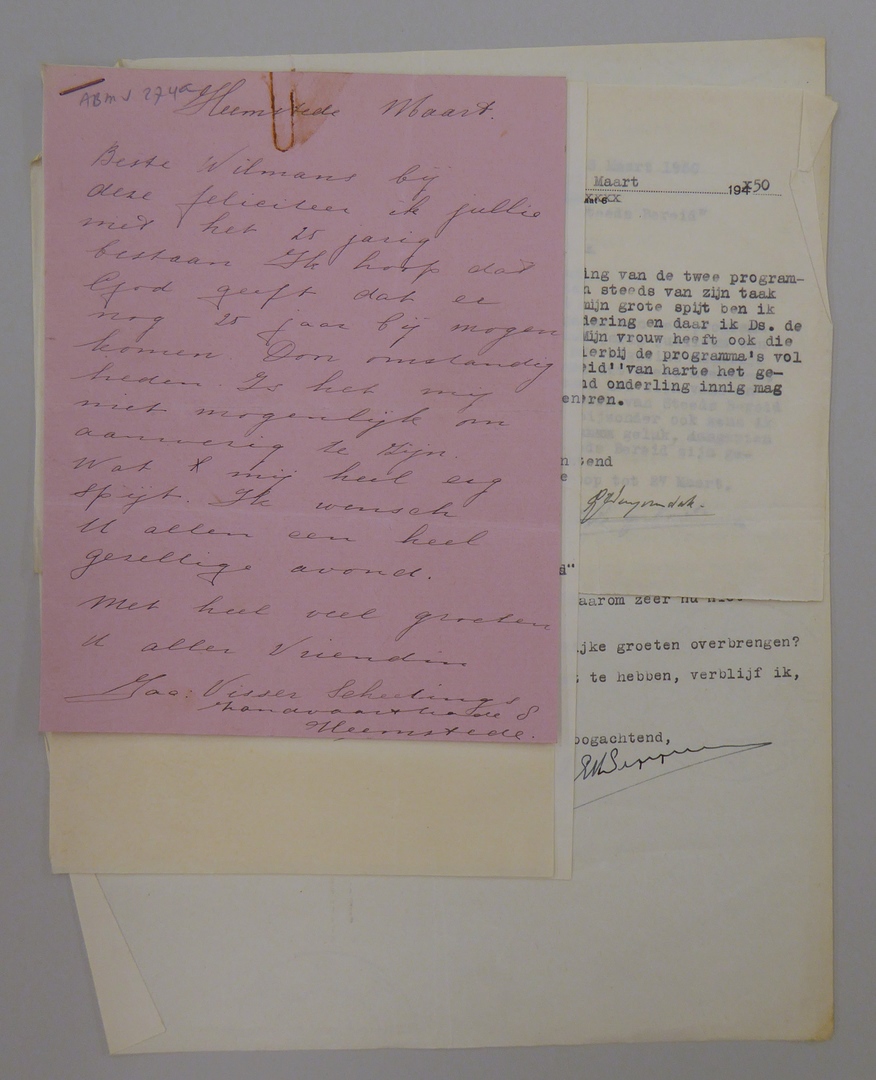 ABM J 274a
Heemstede Maart.
Beste Wilmans bij
deze feliciteer ik jullie
met het 25 jarig
bestaan Ik hoop dat
God geeft dat er
nog 25 jaar bij mogen
komen Don omstandig
heden. Is het mij
niet mogenlijk om
aanwezig te zijn.
Wat x mij heel erg
spijt. Ik wensch
U allen een heel
gezellige avond.
Met heel veel groeten
U aller Vriendin
Jaa: Visser Scheelings
Zandvaartkade 8
Heemstede.
Maart 194x50
xxxx
ing van de twee program-
n steeds van zijn taak
mijn grote spijt ben ik
dering en daar ik Ds. de
Mijn vrouw heeft ook die
ierbij de programma's vol
eid"van harte het ge-
nd onderling innig mag
eneren.
tend
op tot 27 Maart.
d"
aarom zeer
ijke groeten overbrengen?
t te hebben, verblijf ik,
oogachtend,